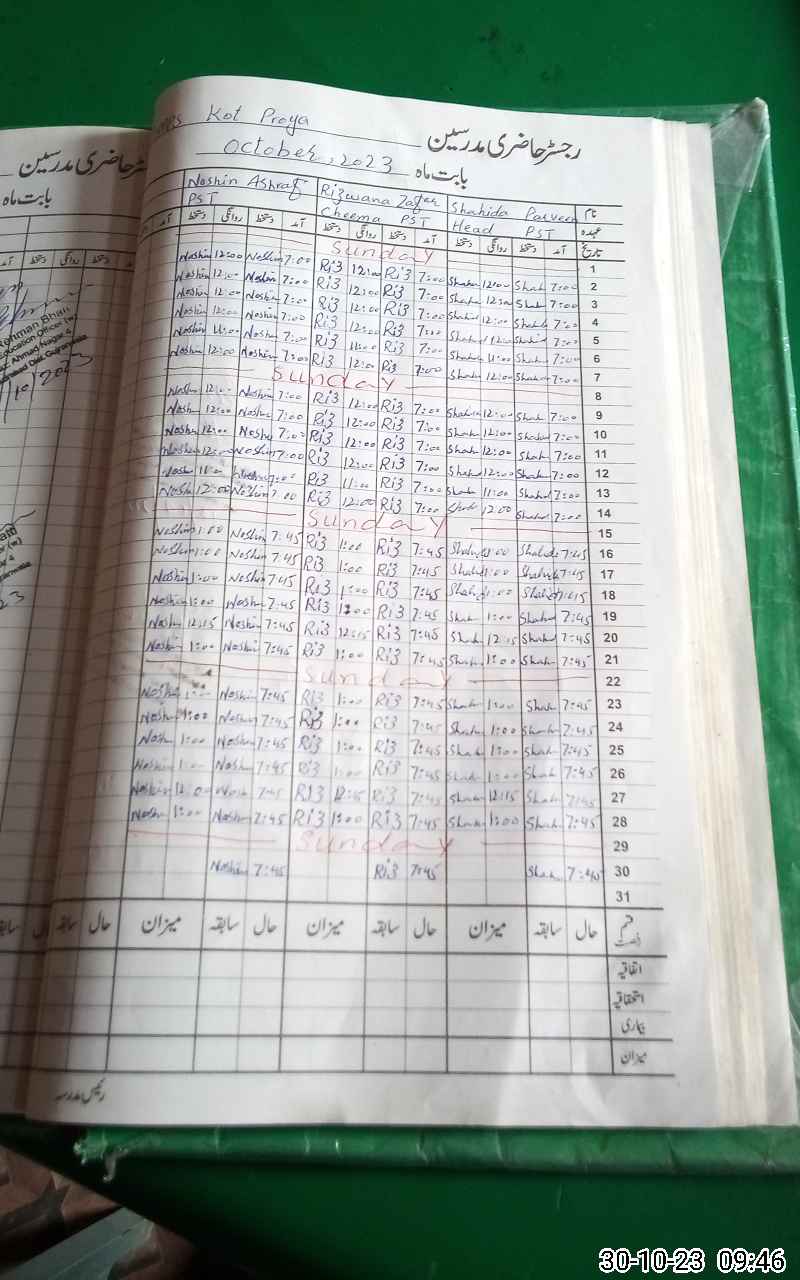 Kot Proya
رجسٹر حاضری مدرسین
October, 2023 بابت ماہ
Noshin Ashraf Rizwana Zafar Shahida Parveen نام
PST Cheema PST Head PST عہدہ
آمد دستخط روانگی دستخط آمد دستخط روانگی دستخط آمد دستخط روانگی دستخط تاریخ
Sunday 1
Noshin 12:00 Noshin 7:00 Ri3 12:00 Ri3 7:00 Shah 12:00 Shah 7:00 2
Noshin 12:00 Noshin 7:00 Ri3 12:00 Ri3 7:00 Shah Shah 7:00 3
Noshin 12:00 Noshin 7:00 Ri3 12:00 Ri3 7:00 Shah 12:00 Shah 7:00 4
Noshin 12:00 Noshin 7:00 Ri3 12:00 Ri3 7:00 Shah 12:00 7:00 5
Noshin 11:00 Noshin 7:00 Ri3 11:00 Ri3 7:00 Shah 11:00 Shah 7:00 6
Noshin 12:00 Noshin 7:00 Ri3 12:00 Ri3 7:00 Shah 12:00 Shah 7:00 7
Sunday 8
Noshin 12:00 Noshin 7:00 Ri3 12:00 Ri3 7:00 Shah 12:00 Shah 7:00 9
Noshin 12:00 Noshin 7:00 Ri3 12:00 Ri3 7:00 Shah 12:00 Shah 7:00 10
Noshin 12:00 Noshin 7:00 Ri3 12:00 Ri3 7:00 Shah 12:00 Shah 7:00 11
Noshin 12:00 Noshin 7:00 Ri3 12:00 Ri3 7:00 Shah 12:00 Shah 7:00 12
Noshin 11:00 Noshin 7:00 Ri3 11:00 Ri3 7:00 Shah 11:00 Shah 7:00 13
Noshin 12:00 Noshin 7:00 Ri3 12:00 Ri3 7:00 Shah 12:00 Shah 7:00 14
Sunday 15
Noshin 1:00 Noshin 7:45 Ri3 1:00 Ri3 7:45 Shahid 1:00 Shahid 7:45 16
Noshin 1:00 Noshin 7:45 Ri3 1:00 Ri3 7:45 Shahid 1:00 Shahid 7:45 17
Noshin 1:00 Noshin 7:45 Ri3 1:00 Ri3 7:45 Shahid 1:00 Shahid 7:45 18
Noshin 1:00 Noshin 7:45 Ri3 Ri3 7:45 Shah 1:00 Shah 7:45 19
Noshin 12:15 Noshin 7:45 Ri3 12:15 Ri3 7:45 Shah 12:15 Shah 7:45 20
Noshin 1:00 Noshin 7:45 Ri3 1:00 Ri3 7:45 Shah 1:00 Shah 7:45 21
Sunday 22
Noshin Noshin 7:45 Ri3 1:00 Ri3 7:45 Shah 1:00 Shah 7:45 23
Nosh 1:00 Noshin 7:45 Ri3 1:00 Ri3 7:45 Shah 1:00 Shah 7:45 24
Nosh 1:00 Nosh 7:45 Ri3 1:00 Ri3 7:45 Shah 1:00 Shah 7:45 25
Noshin 1:00 Nosh 7:45 Ri3 1:00 Ri3 7:45 Shah 1:00 Shah 7:45 26
Noshin Nosh 7:45 Ri3 12:15 Ri3 7:45 Shah 12:15 Shah 7:45 27
Nosh 1:00 Nosh 7:45 Ri3 1:00 Ri3 7:45 Shah 1:00 Shah 7:45 28
Sunday 29
Noshin 7:45 Ri3 7:45 Shah 7:40 30
31
قسم رخصت حال سابقہ میزان حال سابقہ میزان حال سابقہ میزان حال سابقہ
اتفاقیہ
استحقاقیہ
بیماری
میزان
رئیس مدرسہ
رجسٹر حاضری مدرسین
بابت ماہ
30-10-23 09:46